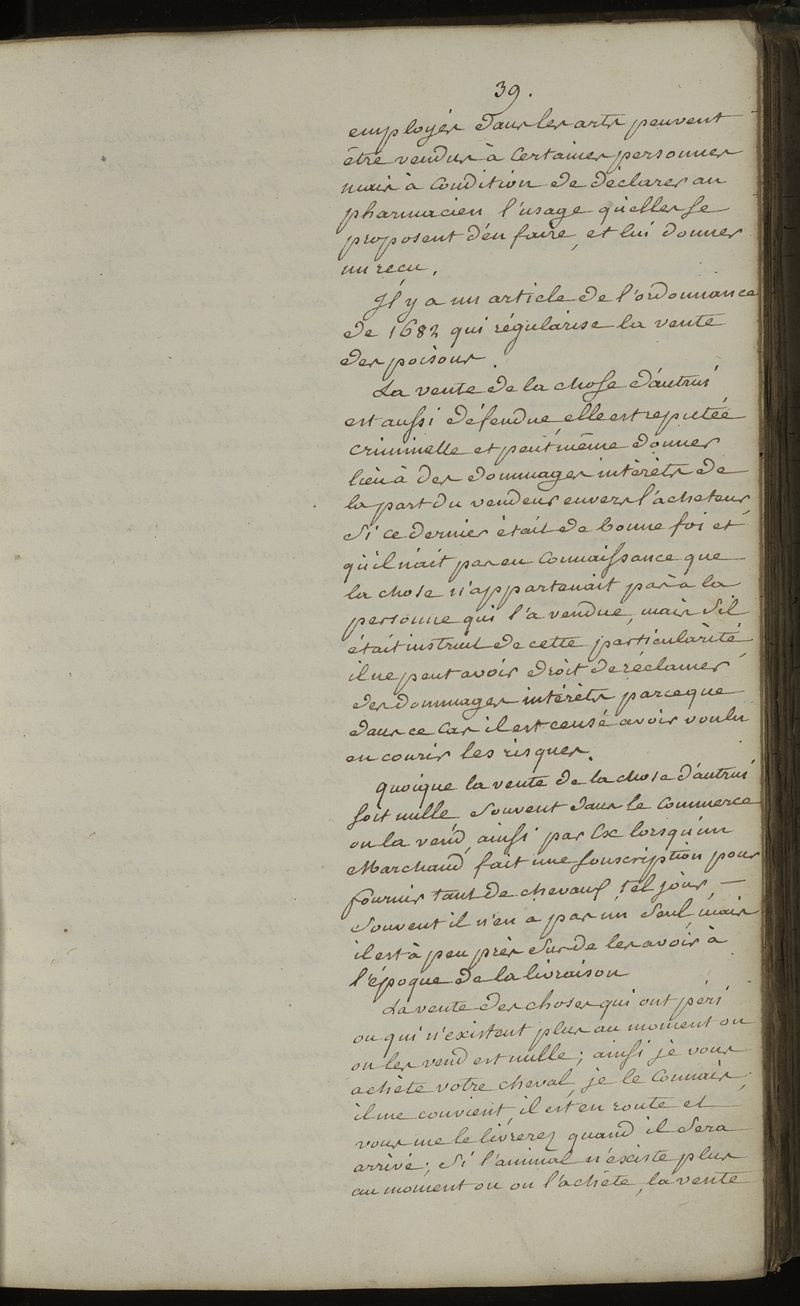 39.
employés dans les arts peuvent
être vendus à certaines personnes
mais à condition de déclarer au
pharmacien l'usage qu'elles se
proposent d'en faire, et lui donner
un recu.
Il y a un article de l'ordonnance
de 1682 qui régularise la vente
des poisons.
La vente de la chose d'autrui
est aussi défendue, elle est reputée
criminelle et peut même donner
lieu à des dommages intérêts de
la part du vendeur envers l'acheteur
Si ce dernier était de bonne foi et
qu'il n'ait pas eu connaissance que
la chose n'appartenait pas à la
personne qui l'a vendue, mais s'il
était instruit de cette particularité
il ne peut avoir droit de réclamer
des dommages intérêts parceque
dans ce cas il est censé avoir voulu
en courir les risques.
quoique la vente de la chose d'autrui
soit nulle, souvent dans le commerce
on la vend, ainsi par Ex lorsqu'un
Marchand fait une souscription pour
fournir tant de chevaux tel jour, —
souvent il n'en a pas un seul, mais
il est à peu près sur de les avoir à
l'époque de la livraison
La vente des choses qui ont péri
ou qui n'existent plus au moment ou
on les vend est nulle; ainsi je vous
achète votre cheval, je le connais,
il me convient, il est en route et
vous me le livrerez quand il sera
arrivé; Si l'animal n'existe plus
au moment ou on l'achète, la vente